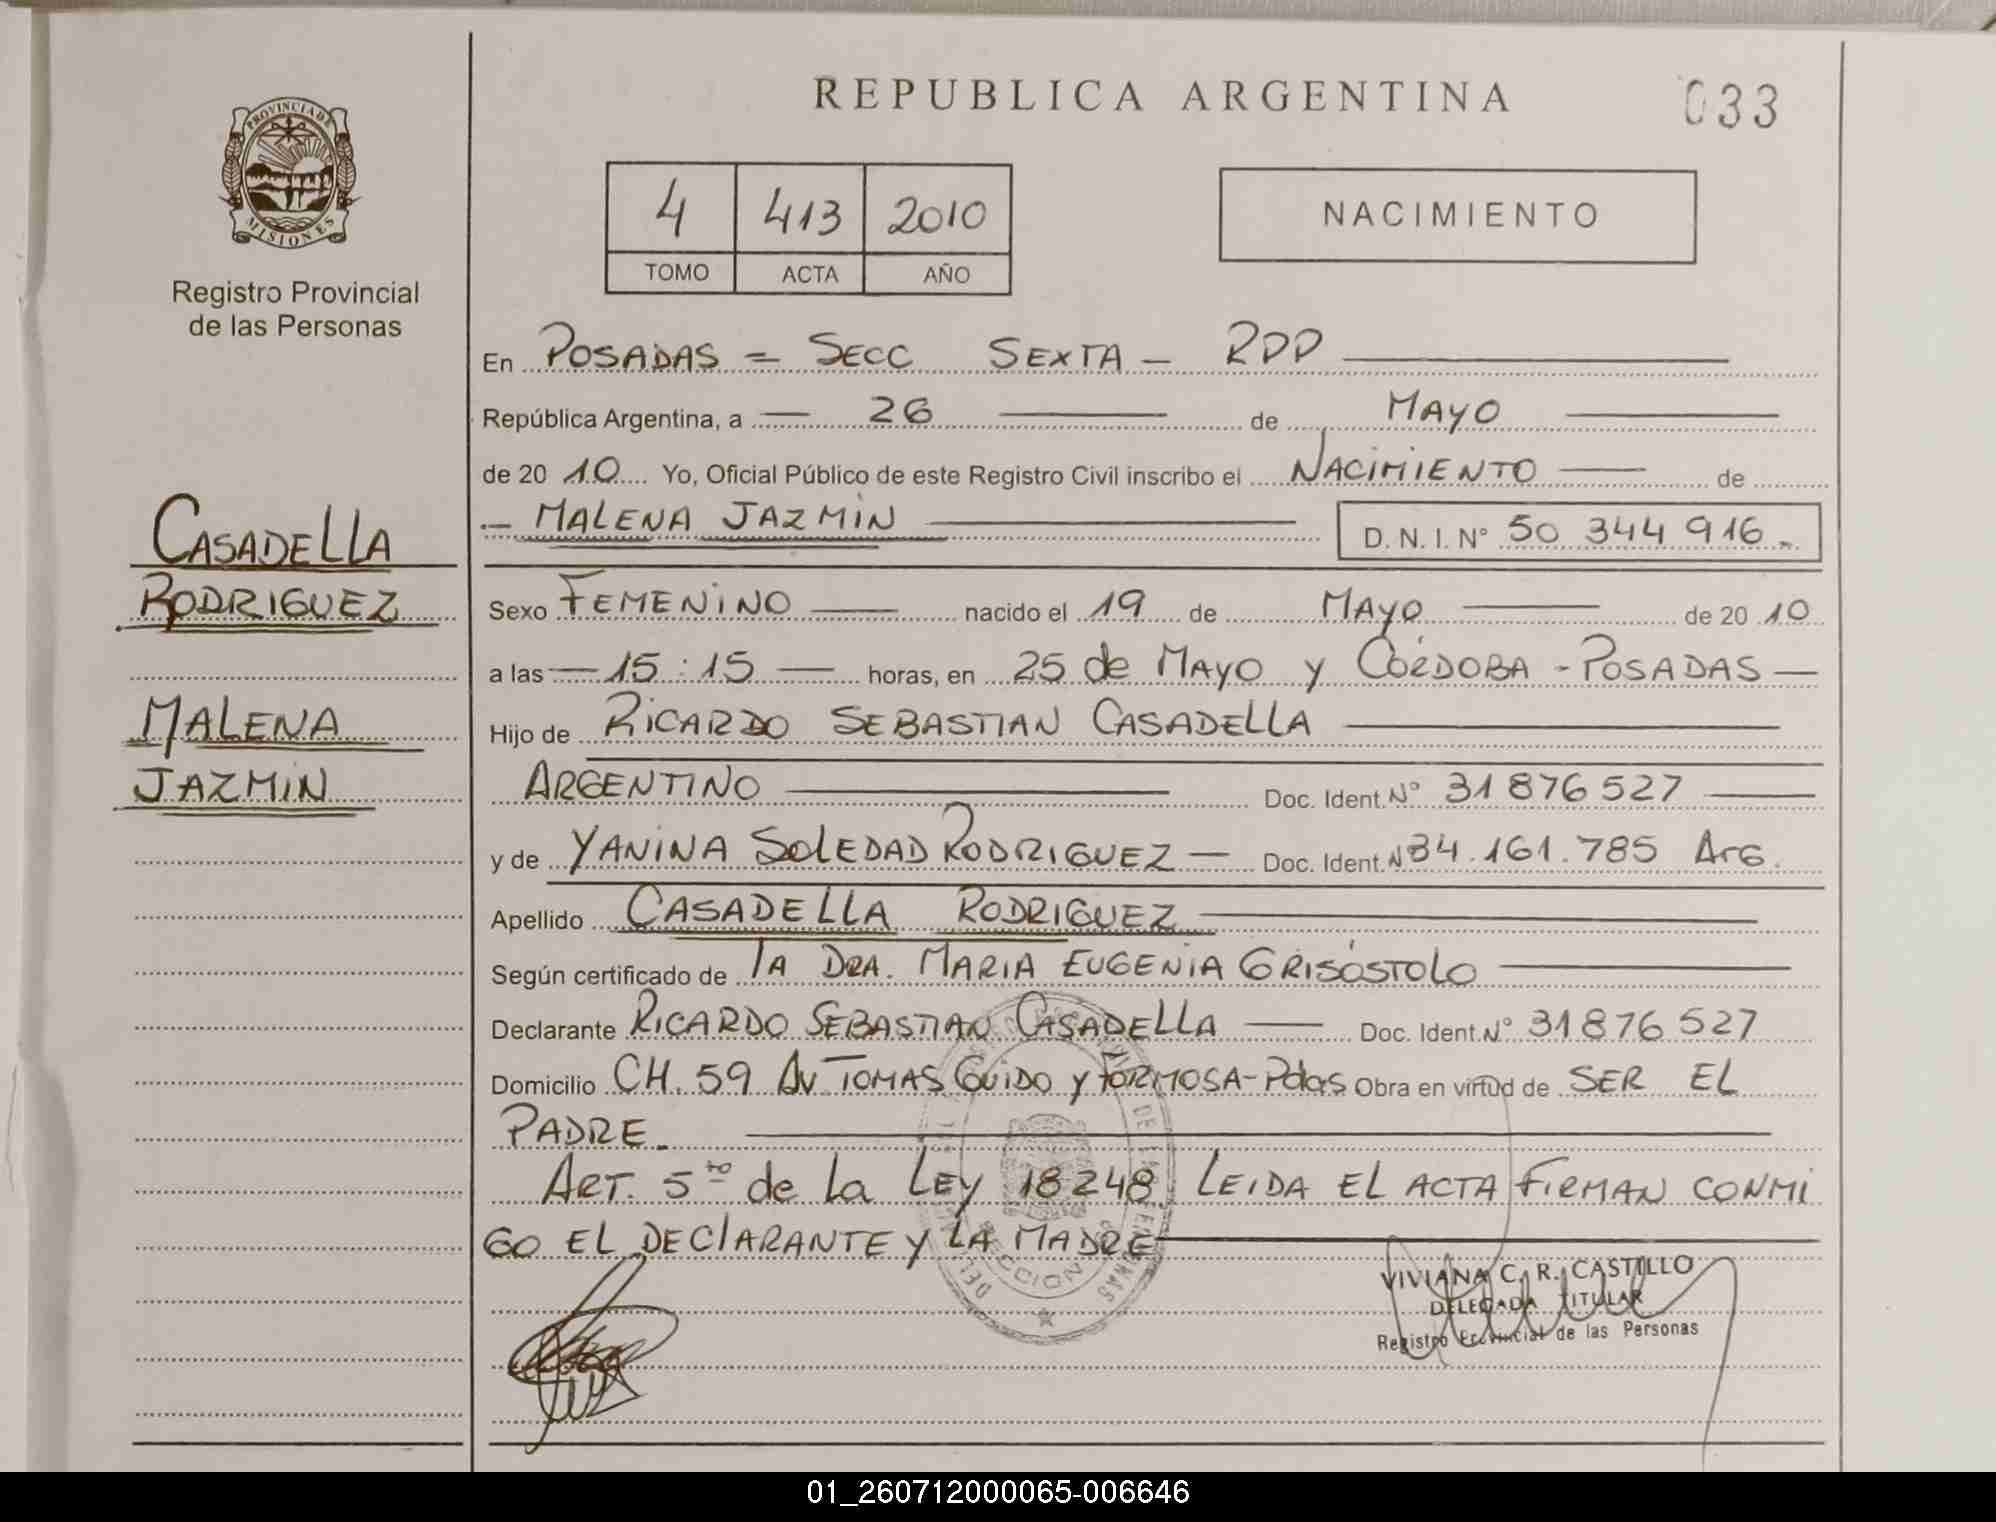 REPUBLICA ARGENTINA
033
PROVINCIA DE
MISIONES
Registro Provincial
de las Personas
4 413 2010
TOMO ACTA AÑO
NACIMIENTO
En POSADAS = SECC SEXTA - RDD
República Argentina, a 26 de MAYO
de 20 10 Yo, Oficial Público de este Registro Civil inscribo el NACIMIENTO de
MALENA JAZMIN D. N. I. N° 50 344 916
CASADELLA
RODRIGUEZ
MALENA
JAZMIN
Sexo FEMENINO nacido el 19 de MAYO de 20 10
a las 15:15 horas, en 25 de MAYO y CÓRDOBA - POSADAS
Hijo de RICARDO SEBASTIAN CASADELLA
ARGENTINO Doc. Ident. N° 31 876 527
y de YANINA SOLEDAD RODRIGUEZ Doc. Ident. N 34.161.785 ARG.
Apellido CASADELLA RODRIGUEZ
Según certificado de lA DRA. MARIA EUGENIA GRISÓSTOLO
Declarante RICARDO SEBASTIAN CASADELLA Doc. Ident. N° 31876 527
Domicilio CH. 59 AV TOMAS GUIDO y FORMOSA-Pdas Obra en virtud de SER EL
PADRE.
ART. 5to de la LEY 18248 LEIDA EL ACTA FIRMAN CONMI
GO EL DEClARANTE y LA MADRE
VIVIANA C. R. CASTILLO
DELEGADA TITULAR
Registro Provincial de las Personas
01_260712000065-006646